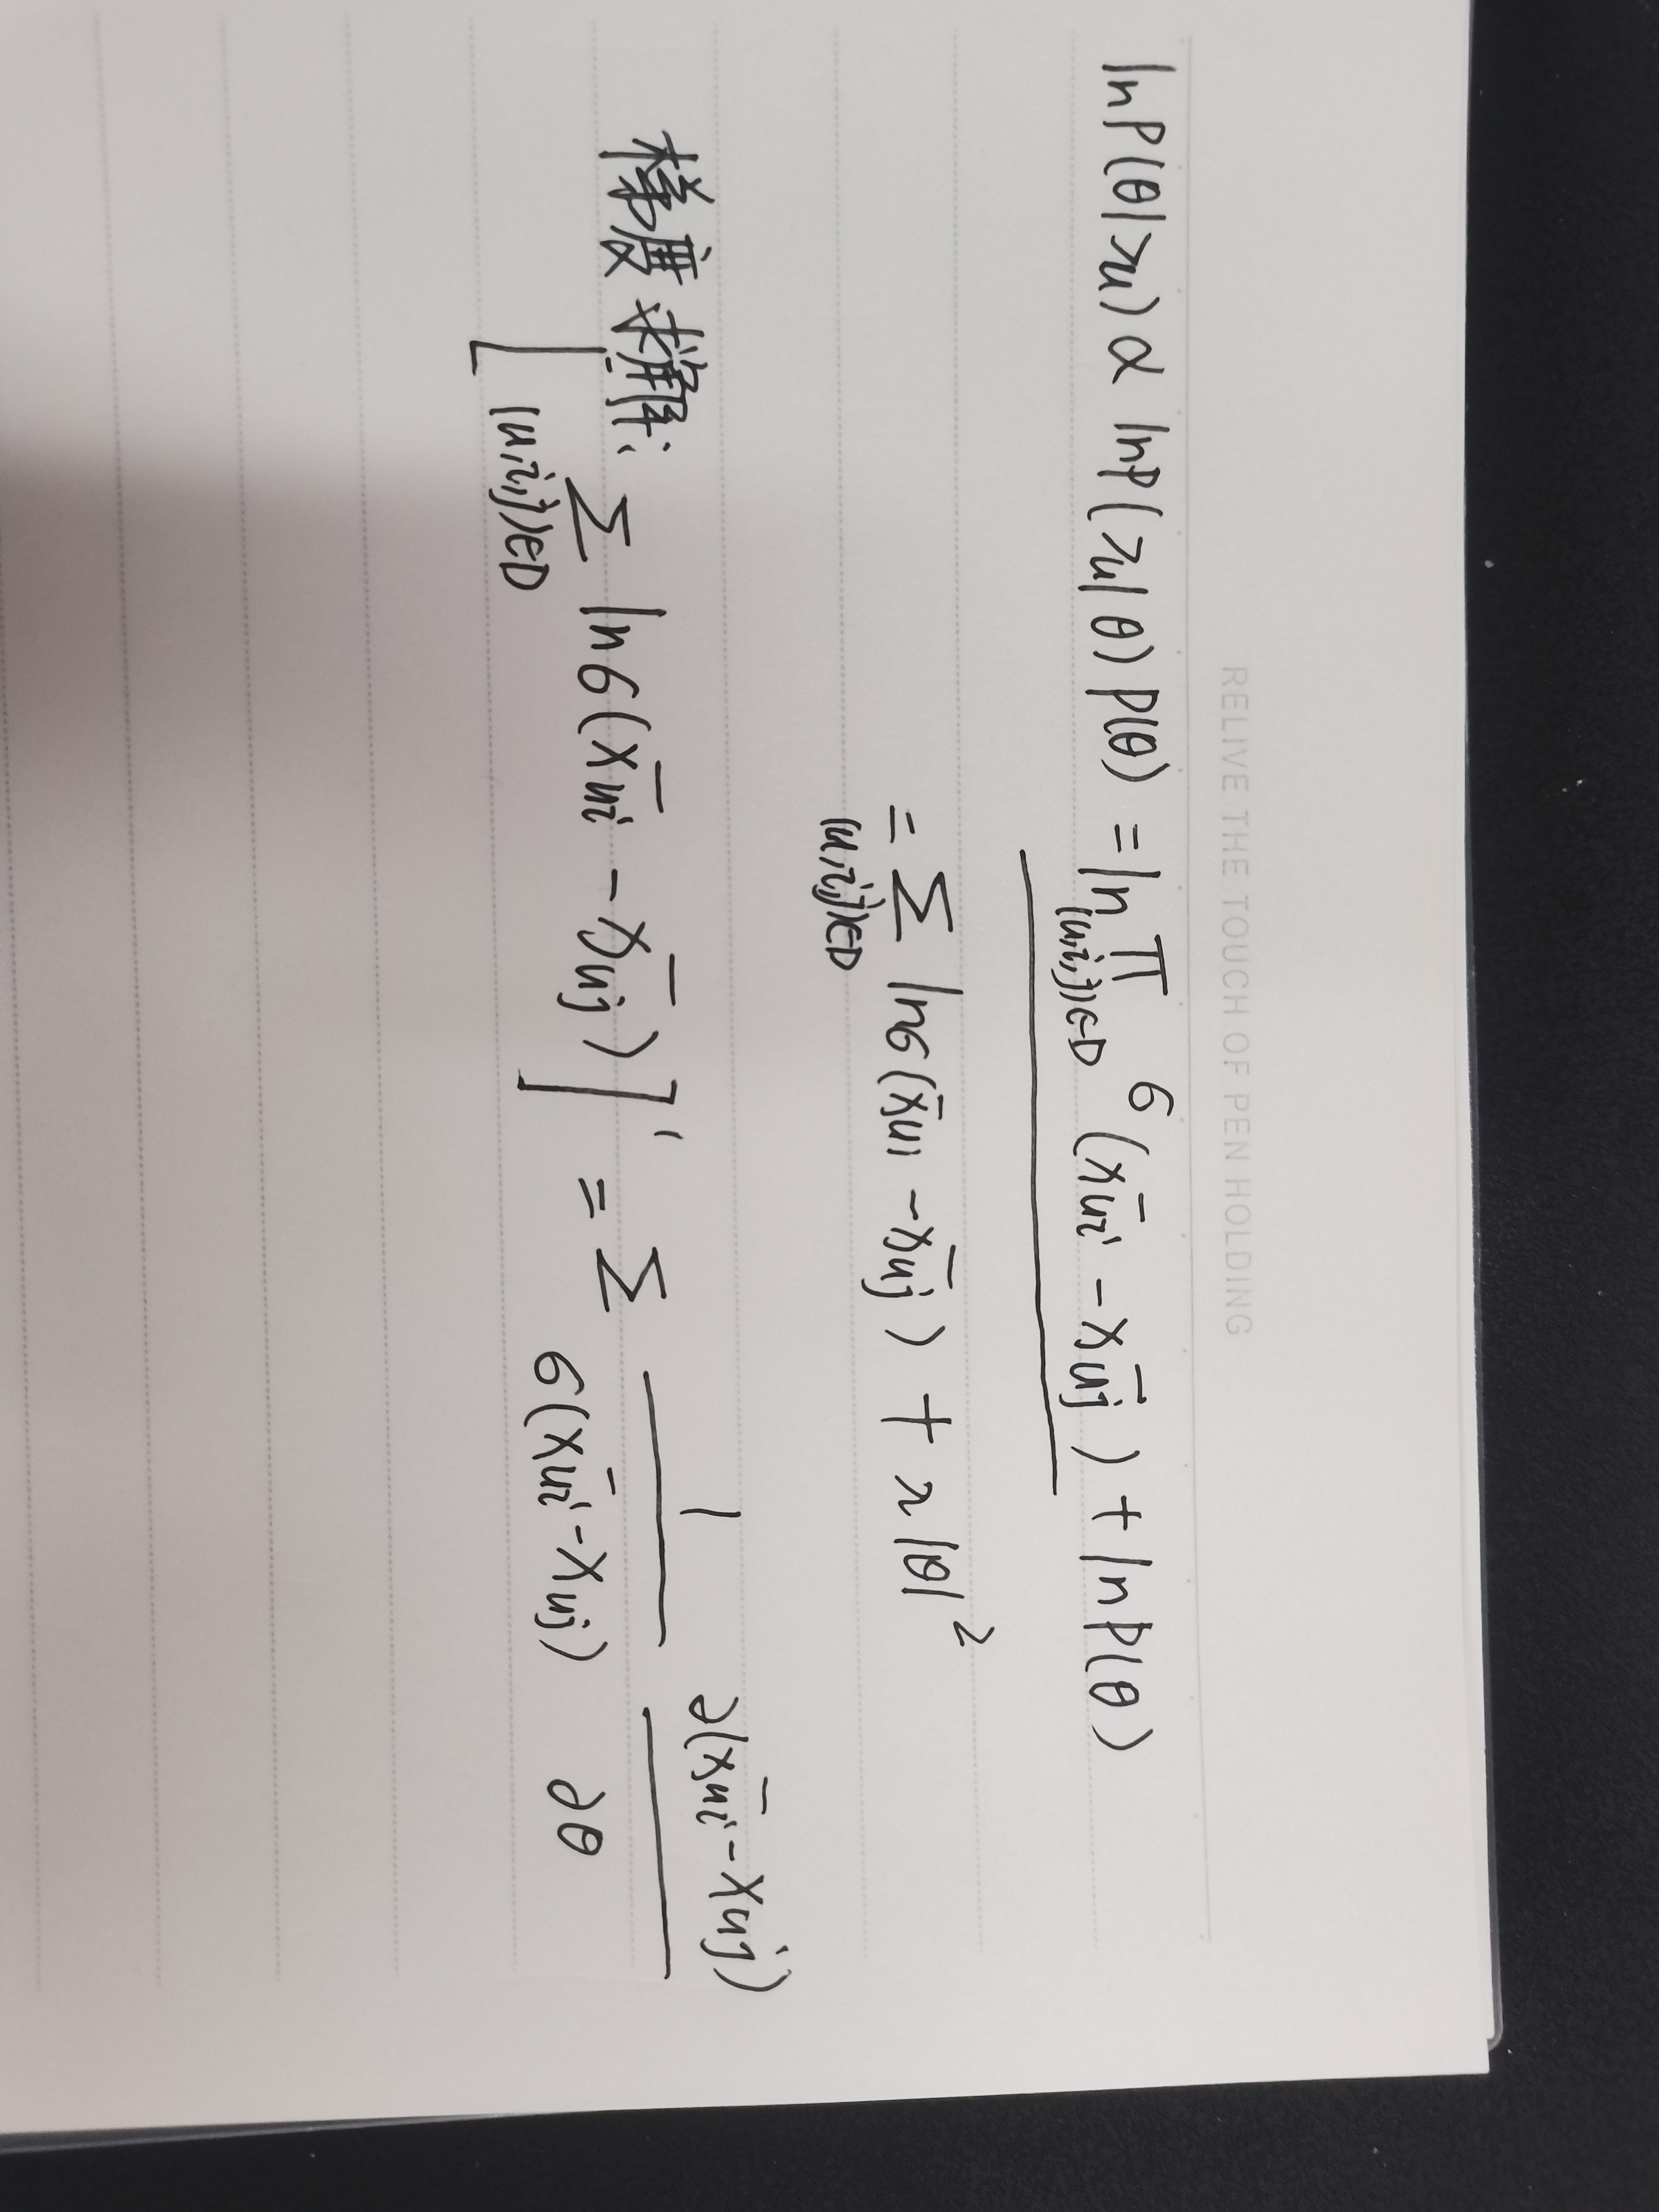 RELIVE THE TOUCH OF PEN HOLDING
lnP(θ|>u) ∝ lnP(>u|θ)P(θ) = ln∏(u,i,j)∈D σ(x̄ui - x̄uj) + lnP(θ)
= ∑(u,i,j)∈D lnσ(x̄ui - x̄uj) + λ|θ|²
梯度求解:
[∑(u,i,j)∈D lnσ(x̄ui - x̄uj)]' = ∑ 1/σ(x̄ui - xuj) ∂(x̄ui - xuj)/∂θ